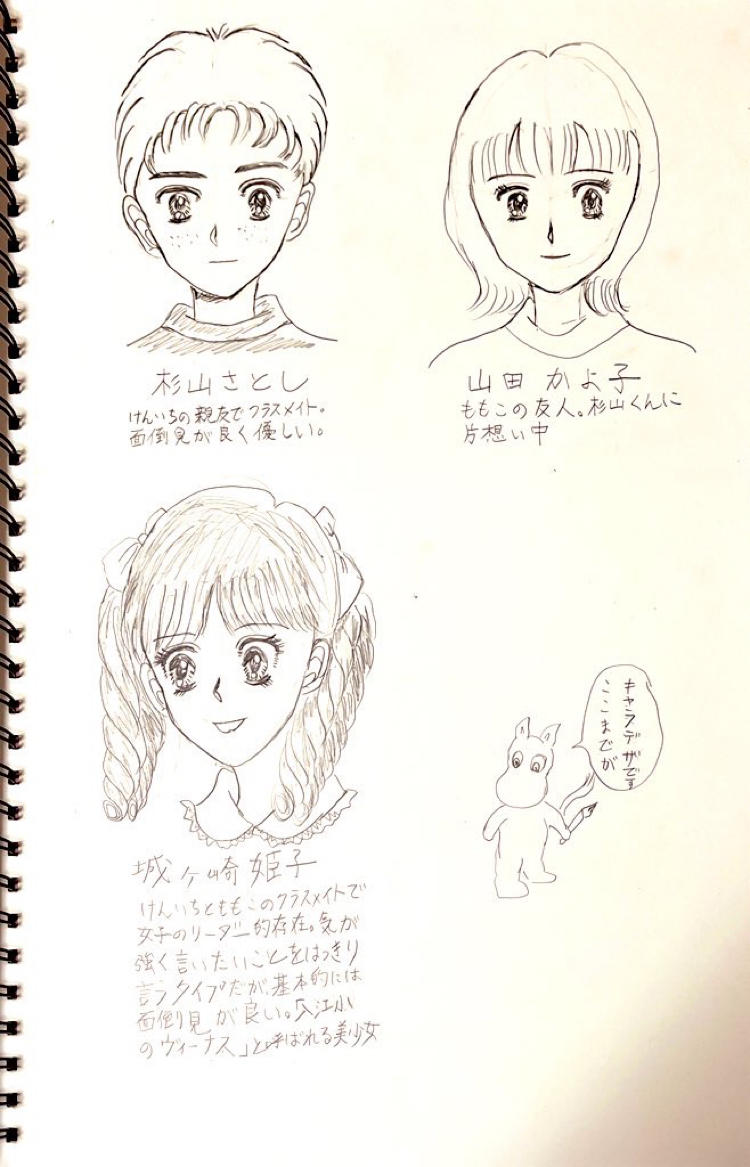 杉山さとし
けんいちの親友でクラスメイト。
面倒見が良く優しい。
山田 かよ子
ももこの友人。杉山くんに
片想い中
城ヶ崎 姫子
けんいちとももこのクラスメイトで
女子のリーダー的存在。気が
強く言いたいことをはっきり
言うタイプだが、基本的には
面倒見が良い。「入江小
のヴィーナス」と呼ばれる美少女
ここまでが
キャラデザです